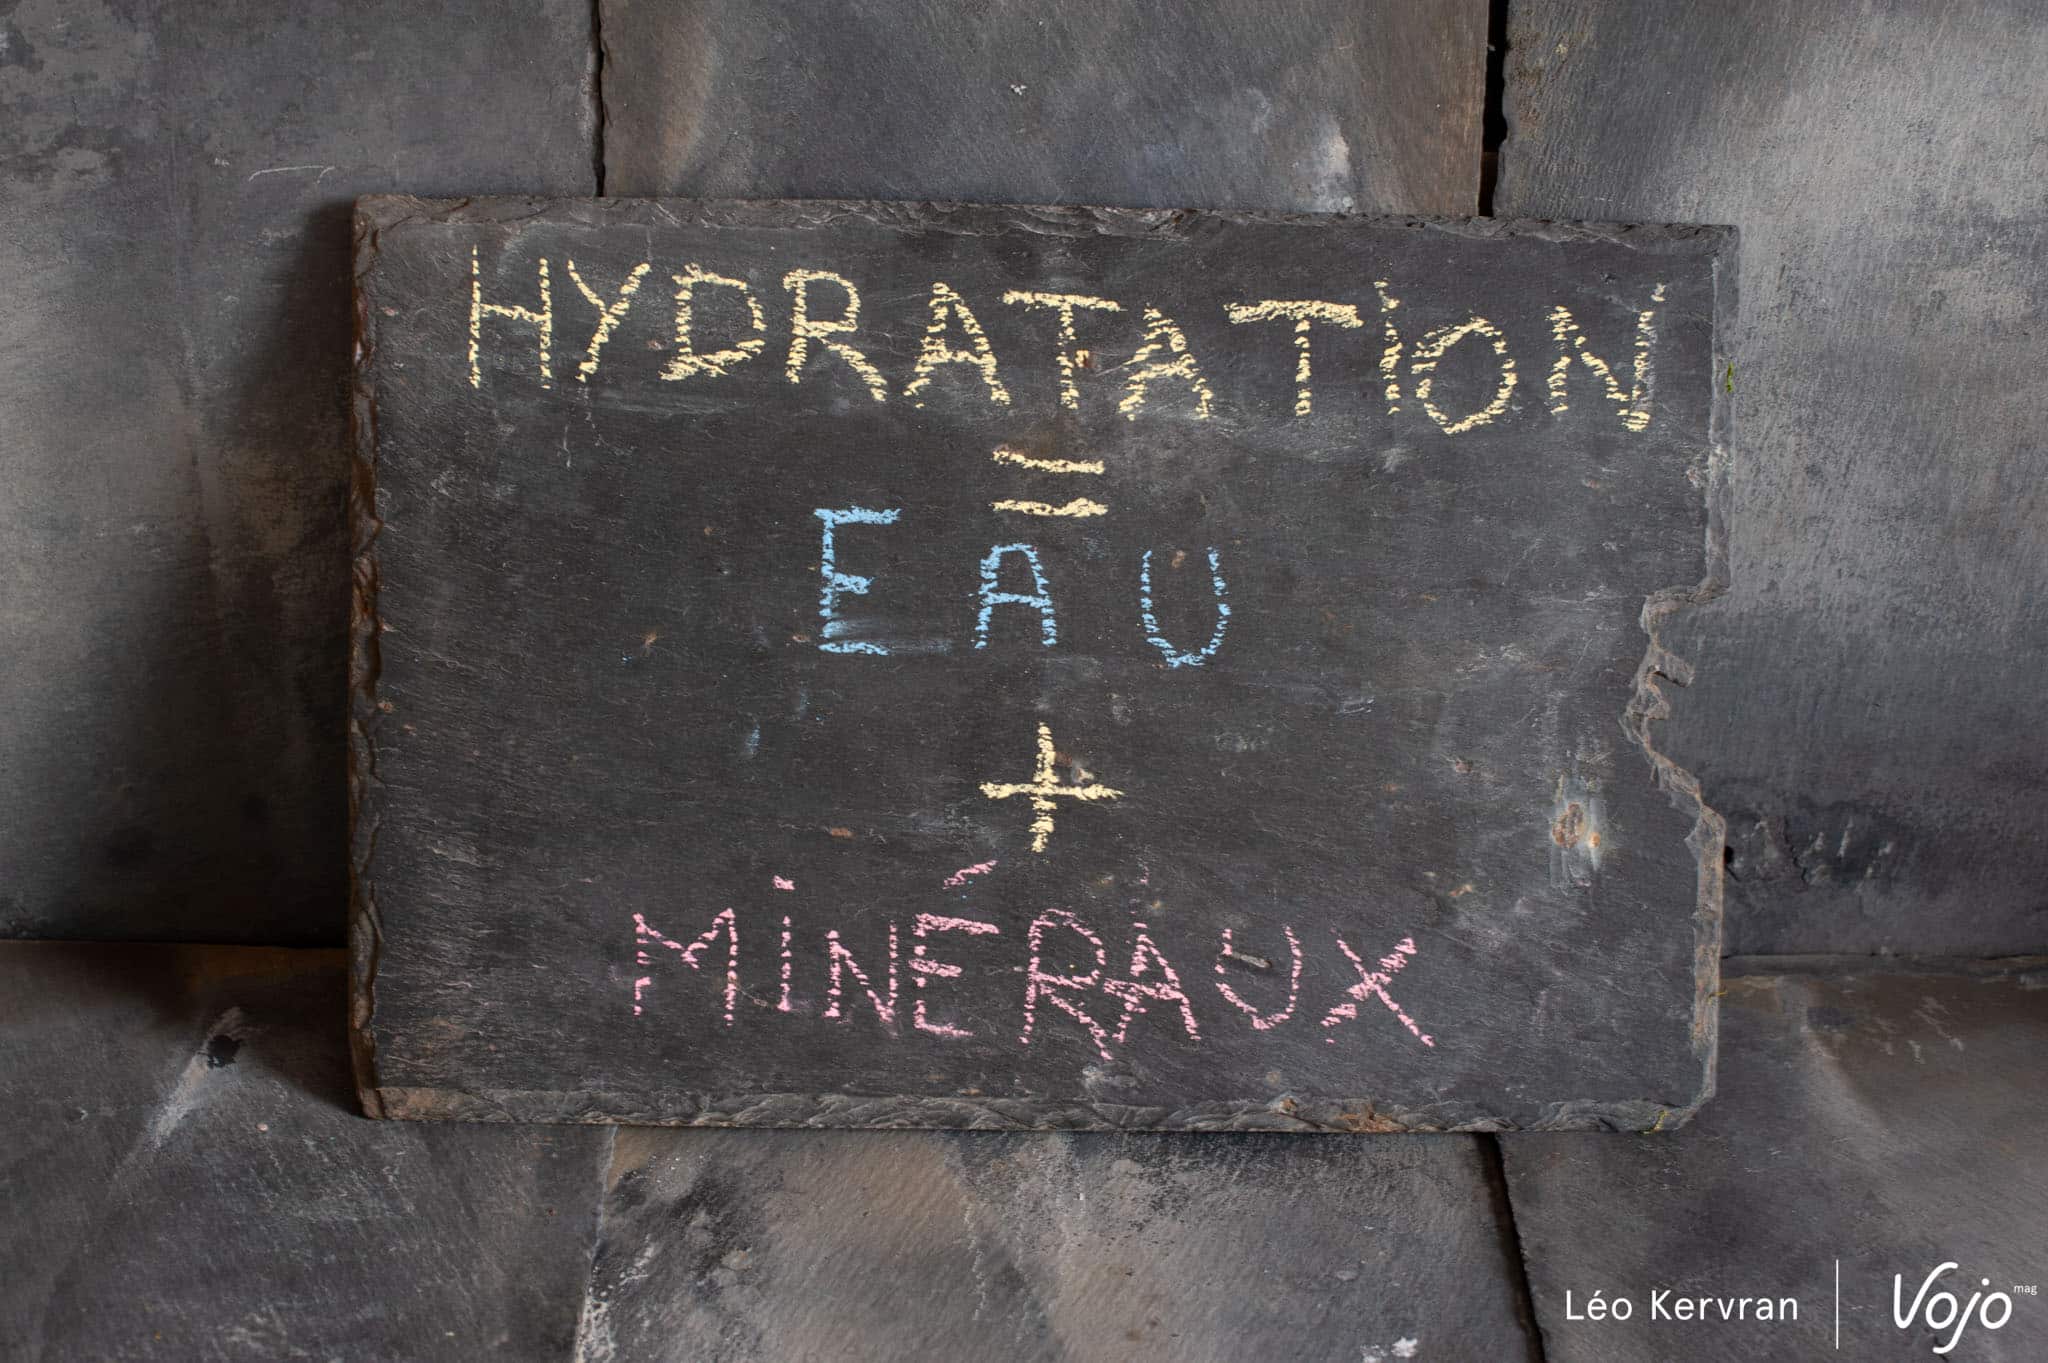 HYDRATATION
=
EAU
+
MINÉRAUX
Léo Kervran
Vojo mag